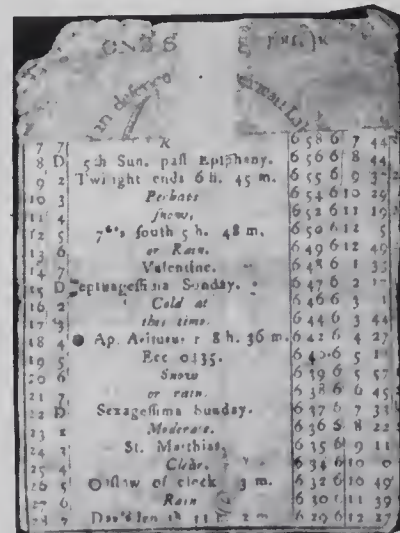 7 7 6 58 6 7 44
8 D 5th Sun. paſt Epiphany. 6 56 6 8 44
9 2 Twilight ends 6 h. 45 m. 6 55 6 9 37
10 3 Perhaps 6 54 6 10 29
11 4 ſnow, 6 52 6 11 19
12 5 7*s ſouth 5 h. 48 m. 6 50 6 12 5
13 6 or Rain. 6 49 6 12 49
14 7 Valentine. 6 48 6 1 33
15 D Septuageſſima Sunday. 6 47 6 2 17
16 2 Cold at 6 46 6 3 1
17 3 this time. 6 44 6 3 44
18 4 ● Ap. r 8 h. 36 m. 6 42 6 4 27
19 5 6 40 6 5
20 6 Snow 6 39 6 5 57
21 7 or rain. 6 38 6 6 45
22 D Sexageſſima Sunday. 6 37 6 7 33
23 2 Moderate. 6 36 6 8 22
24 3 St. Matthias, 6 35 6 9 11
25 4 Clear. 6 34 6 10 0
26 5 ſlow of clock 3 m. 6 32 6 10 49
27 6 Rain 6 30 6 11 39
28 7 11 2 m. 6 29 6 12 27